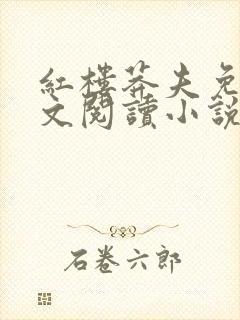 紅樓莽夫免
文閱讀小說
石卷六郎